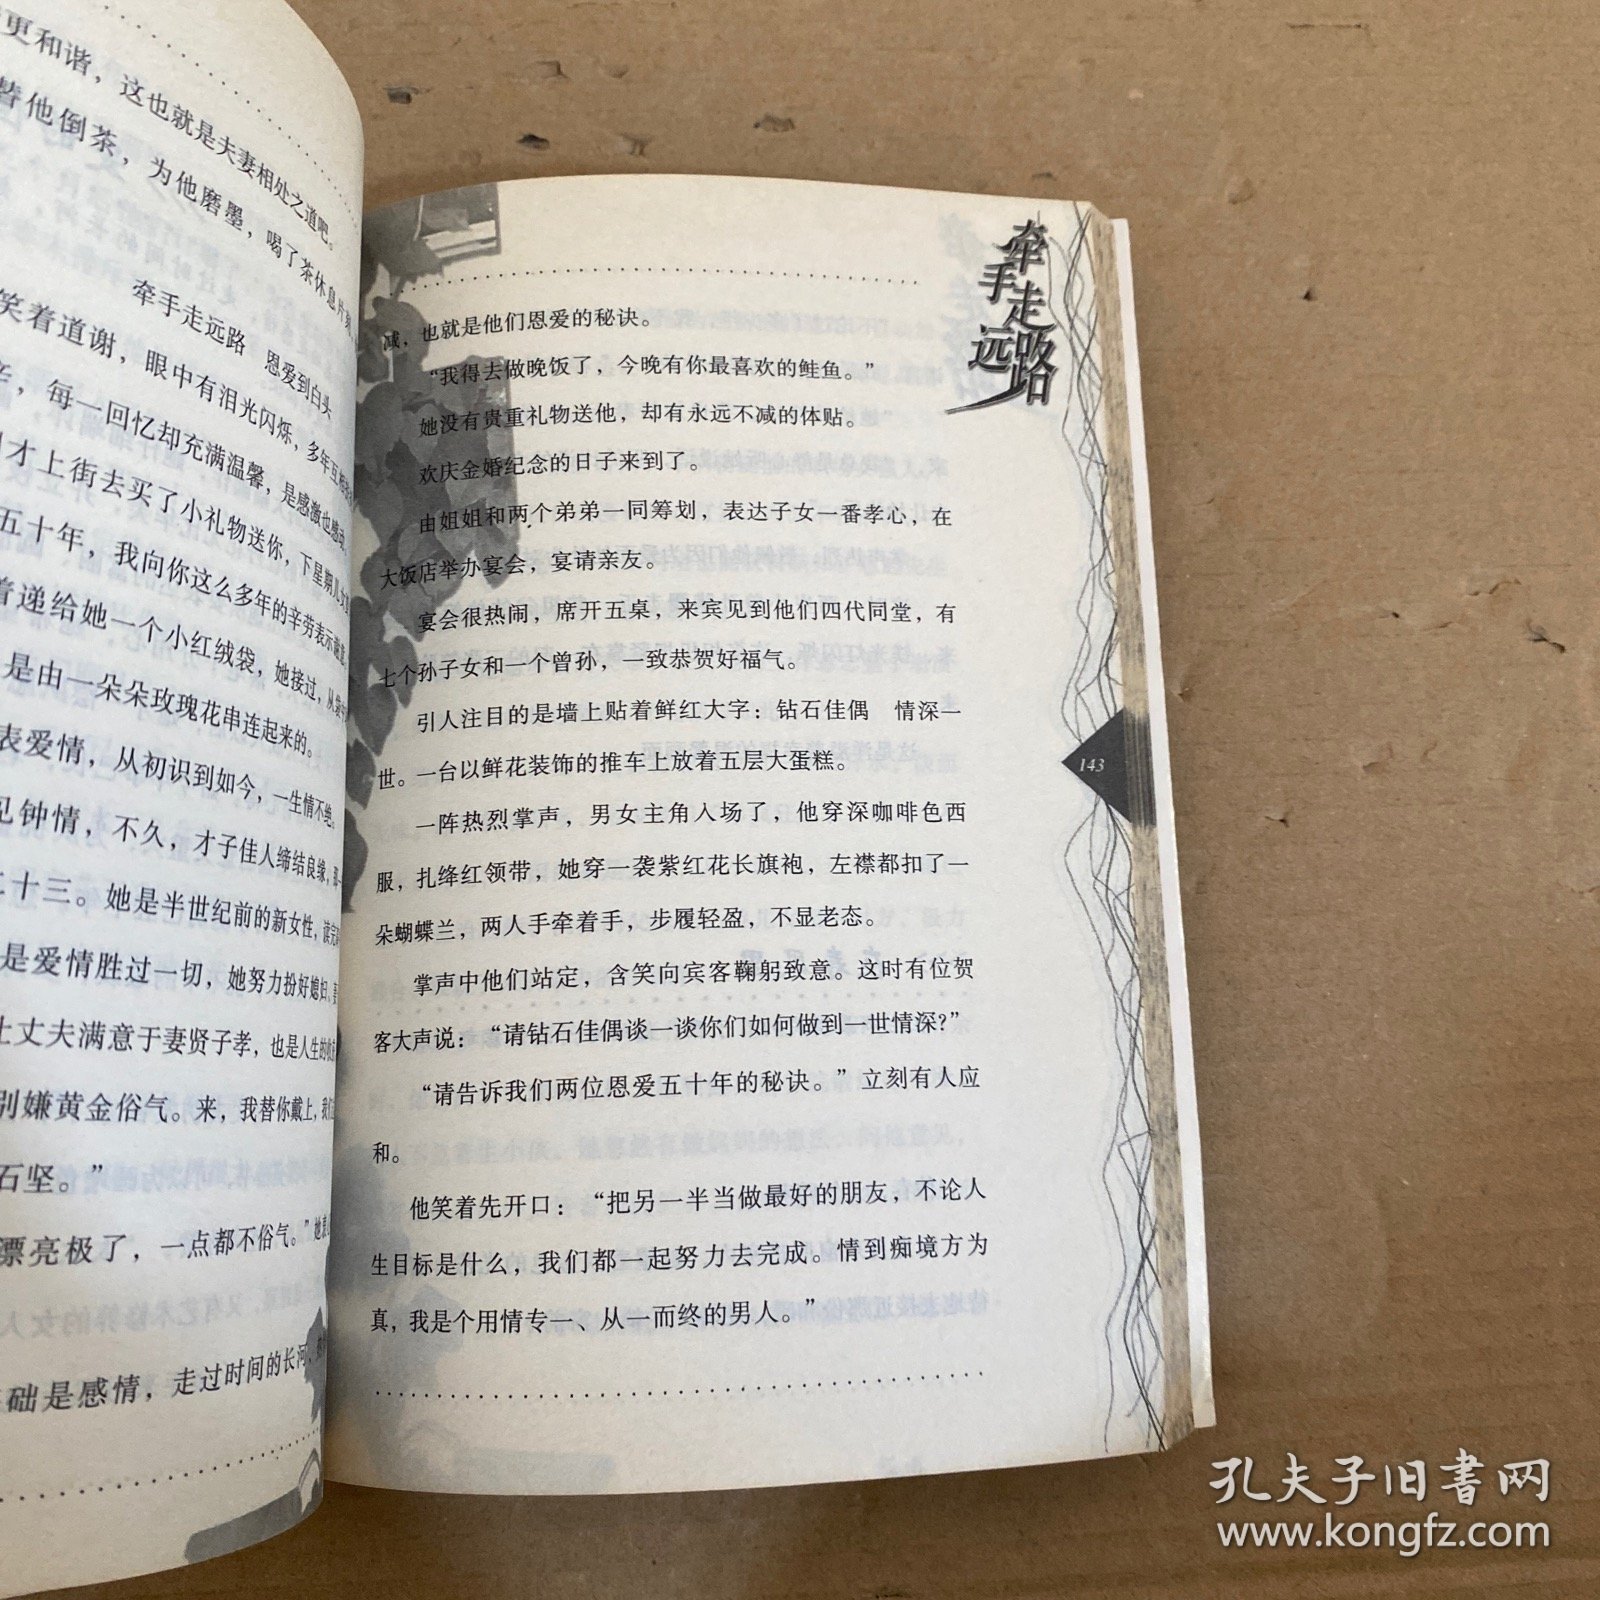 更和谐，这也就是夫妻相处之道吧。
替他倒茶，为他磨墨，喝了茶休息片
牵手走远路　恩爱到白头
笑着道谢，眼中有泪光闪烁，多年互相
，每一回忆却充满温馨，是感激也感动。
才上街去买了小礼物送你，下星期儿女
五十年，我向你这么多年的辛劳表示谢意。
着递给她一个小红绒袋，她接过，从袋中
是由一朵朵玫瑰花串连起来的。
表爱情，从初识到如今，一生情不绝。
见钟情，不久，才子佳人缔结良缘，那一
二十三。她是半世纪前的新女性，读完
是爱情胜过一切，她努力扮好媳妇、妻
丈夫满意于妻贤子孝，也是人生的收
别嫌黄金俗气。来，我替你戴上，我们
石坚。”
漂亮极了，一点都不俗气。”她
础是感情，走过时间的长河，
牵手走远路
减，也就是他们恩爱的秘诀。
“我得去做晚饭了，今晚有你最喜欢的鲑鱼。”
她没有贵重礼物送他，却有永远不减的体贴。
欢庆金婚纪念的日子来到了。
由姐姐和两个弟弟一同筹划，表达子女一番孝心，在
大饭店举办宴会，宴请亲友。
宴会很热闹，席开五桌，来宾见到他们四代同堂，有
七个孙子女和一个曾孙，一致恭贺好福气。
引人注目的是墙上贴着鲜红大字：钻石佳偶　情深一
世。一台以鲜花装饰的推车上放着五层大蛋糕。
一阵热烈掌声，男女主角入场了，他穿深咖啡色西
服，扎绛红领带，她穿一袭紫红花长旗袍，左襟都扣了一
朵蝴蝶兰，两人手牵着手，步履轻盈，不显老态。
掌声中他们站定，含笑向宾客鞠躬致意。这时有位贺
客大声说：“请钻石佳偶谈一谈你们如何做到一世情深?”
“请告诉我们两位恩爱五十年的秘诀。”立刻有人应
和。
他笑着先开口：“把另一半当做最好的朋友，不论人
生目标是什么，我们都一起努力去完成。情到痴境方为
真，我是个用情专一、从一而终的男人。”
143
孔夫子旧书网
www.kongfz.com